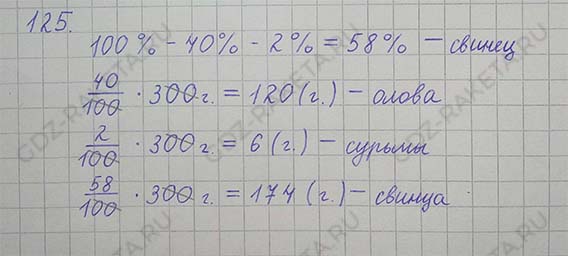 125.
100% - 40% - 2% = 58% – свинец
40/100 · 300 г. = 120 (г.) – олова
2/100 · 300 г. = 6 (г.) – сурьмы
58/100 · 300 г. = 174 (г.) – свинца
GDZ-RAKETA.RU